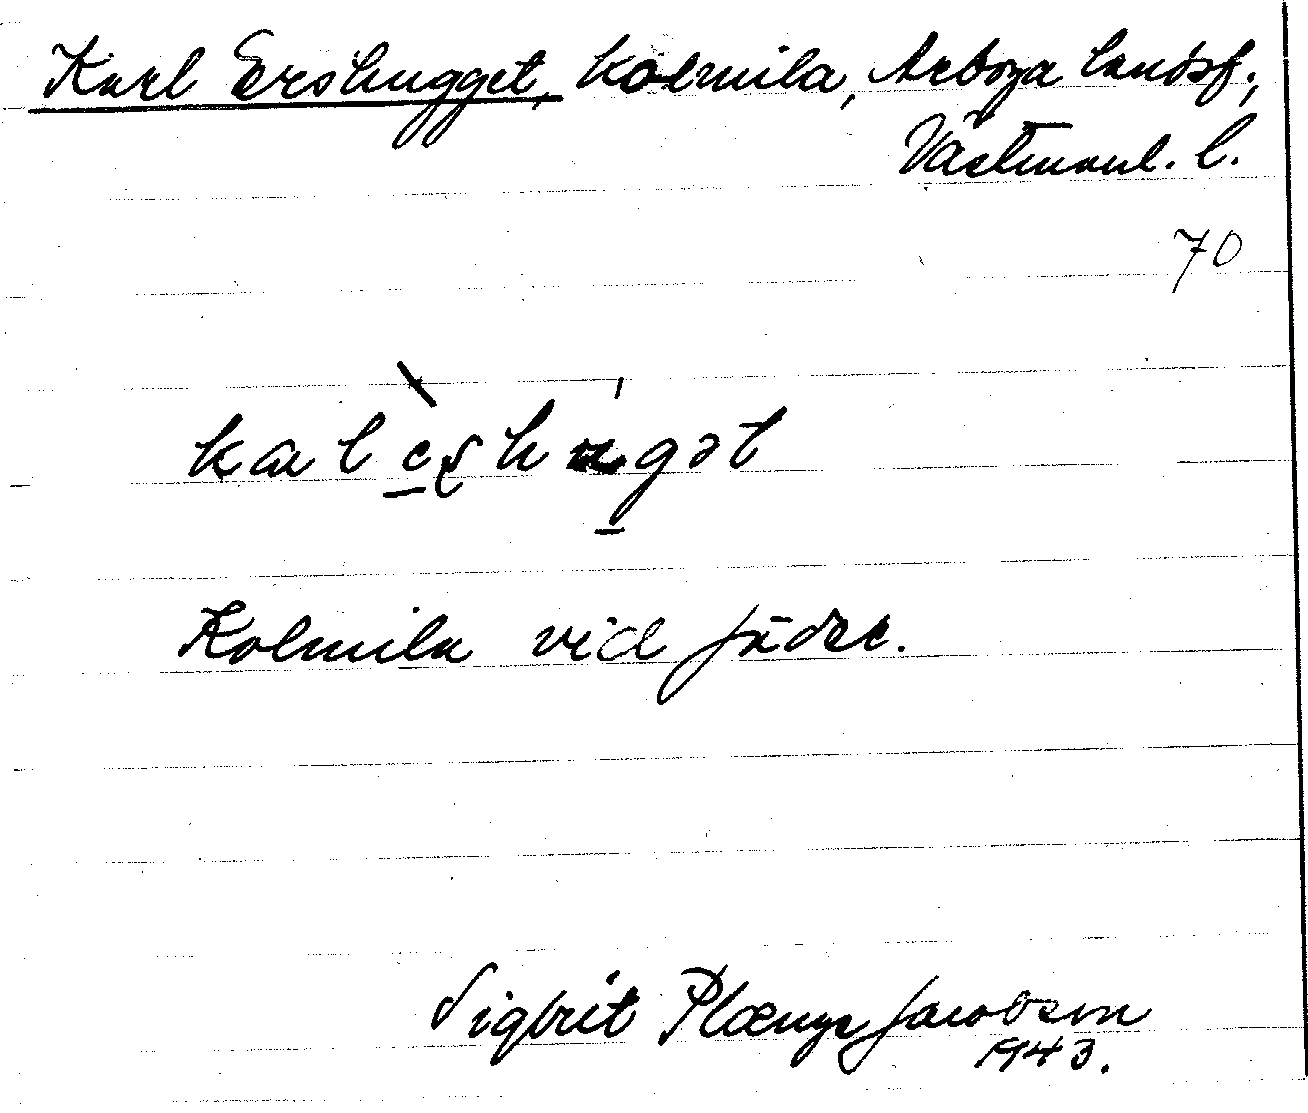 Karl Ershugget, kolmila, Arboga landsf.,
Västmanl. l.
70
kal èʂhúgət
Kolmila vid Jäder.
Sigbrit Plænge Jacobson
1943.